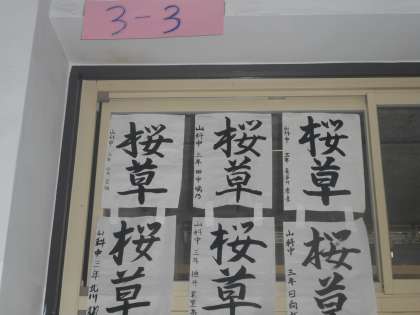 3-3
桜草
山科中
桜草
山科中 三年 田中
桜草
山科中 三年
桜草
山科中 三年 北川
桜草
山科中 三年
桜草
山科中 三年 日向